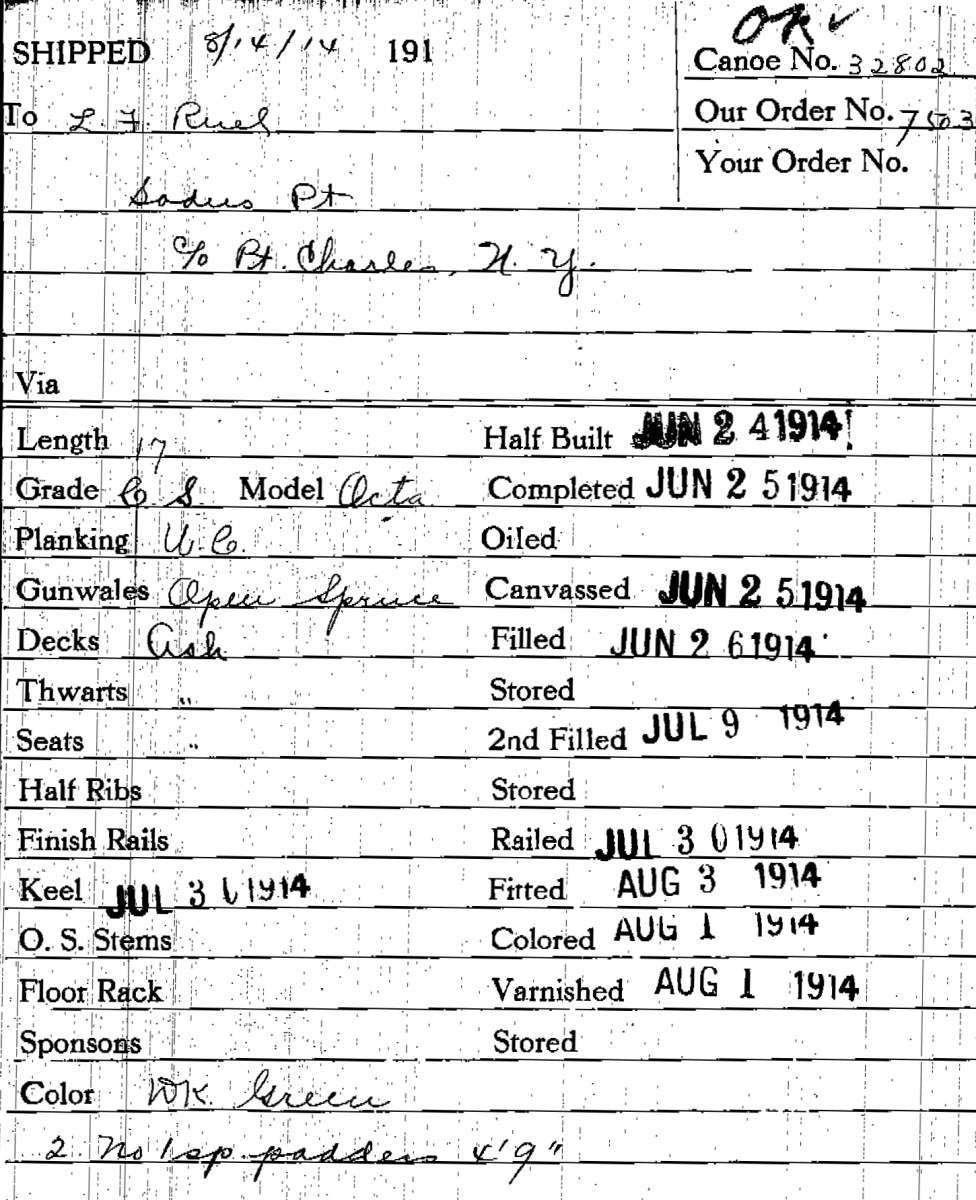 OK ✓
SHIPPED 8/14/14 191
Canoe No. 32802
To L. F.
Our Order No.
Your Order No.
Sodus Pt
c/o Pt. Charles, N. Y.
Via
Length 17 Half Built JUN 24 1914
Grade C S Model Octa Completed JUN 25 1914
Planking W. C. Oiled
Gunwales Open Spruce Canvassed JUN 25 1914
Decks Ash Filled JUN 26 1914
Thwarts " Stored
Seats " 2nd Filled JUL 9 1914
Half Ribs Stored
Finish Rails Railed JUL 30 1914
Keel JUL 30 1914 Fitted AUG 3 1914
O. S. Stems Colored AUG 1 1914
Floor Rack Varnished AUG 1 1914
Sponsons Stored
Color DK. Green
2 No 1 sp. paddles 4'9"